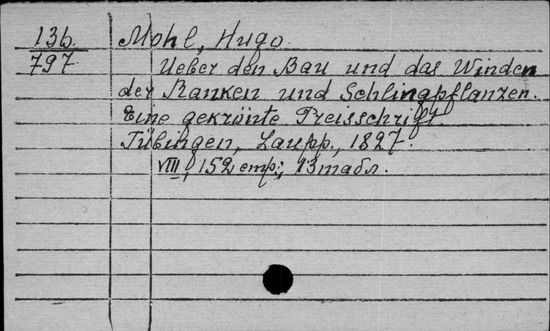 13b. Mohl, Hugo.
797 Ueber den Bau und das Winden
der Ranken und Schlingpflanzen.
Eine gekrönte Preisschrift.
Tübingen, Laupp, 1827.
VIII, 152 стр.; 13 табл.